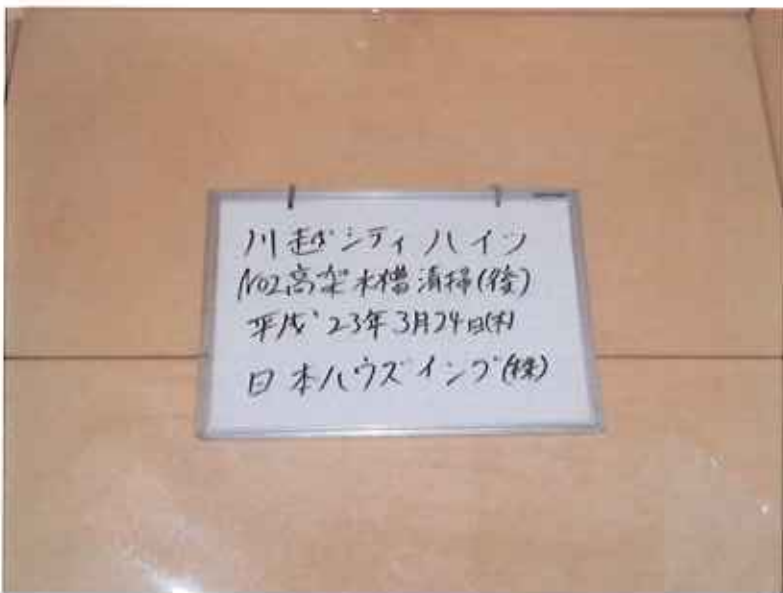 川越シティハイツ
No2高架水槽清掃(後)
平成23年3月24日(木)
日本ハウズイング(株)